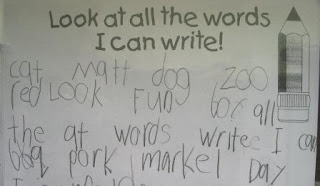 Look at all the words
I can write!
cat matt dog zoo
red LOOK Fun box all
the at words write I can
pork market Day